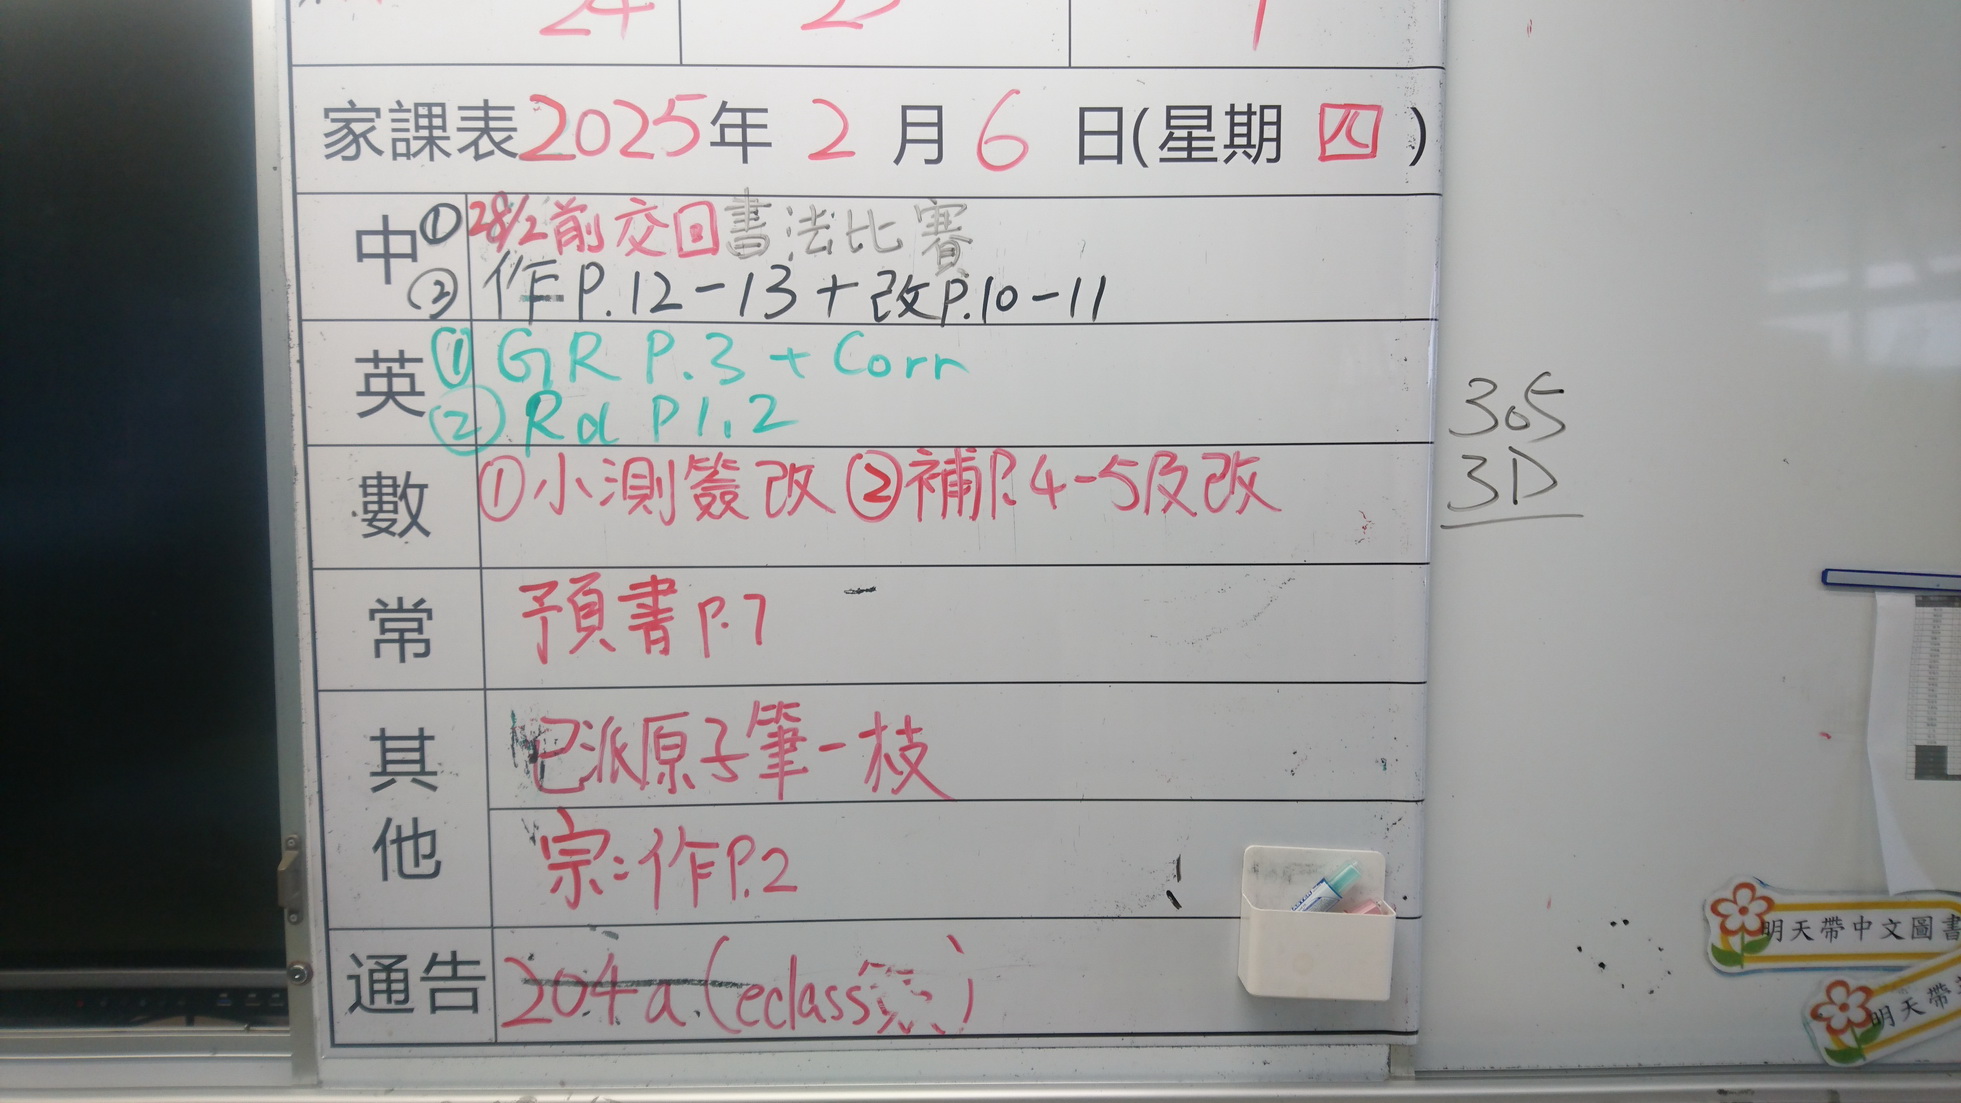 24
家課表2025年 2 月 6 日(星期 四 )
中 ① 28/2前交回書法比賽
② 作P.12-13+改P.10-11
英 ① GR P.3 + Corr
② Rd P1.2
數 ①小測簽改 ②補P.4-5及改
常 預書P.7
其他 已派原子筆一枝
宗:作P.2
通告 204a (eclass簽)
305
3D
明天帶中文圖書
明天帶